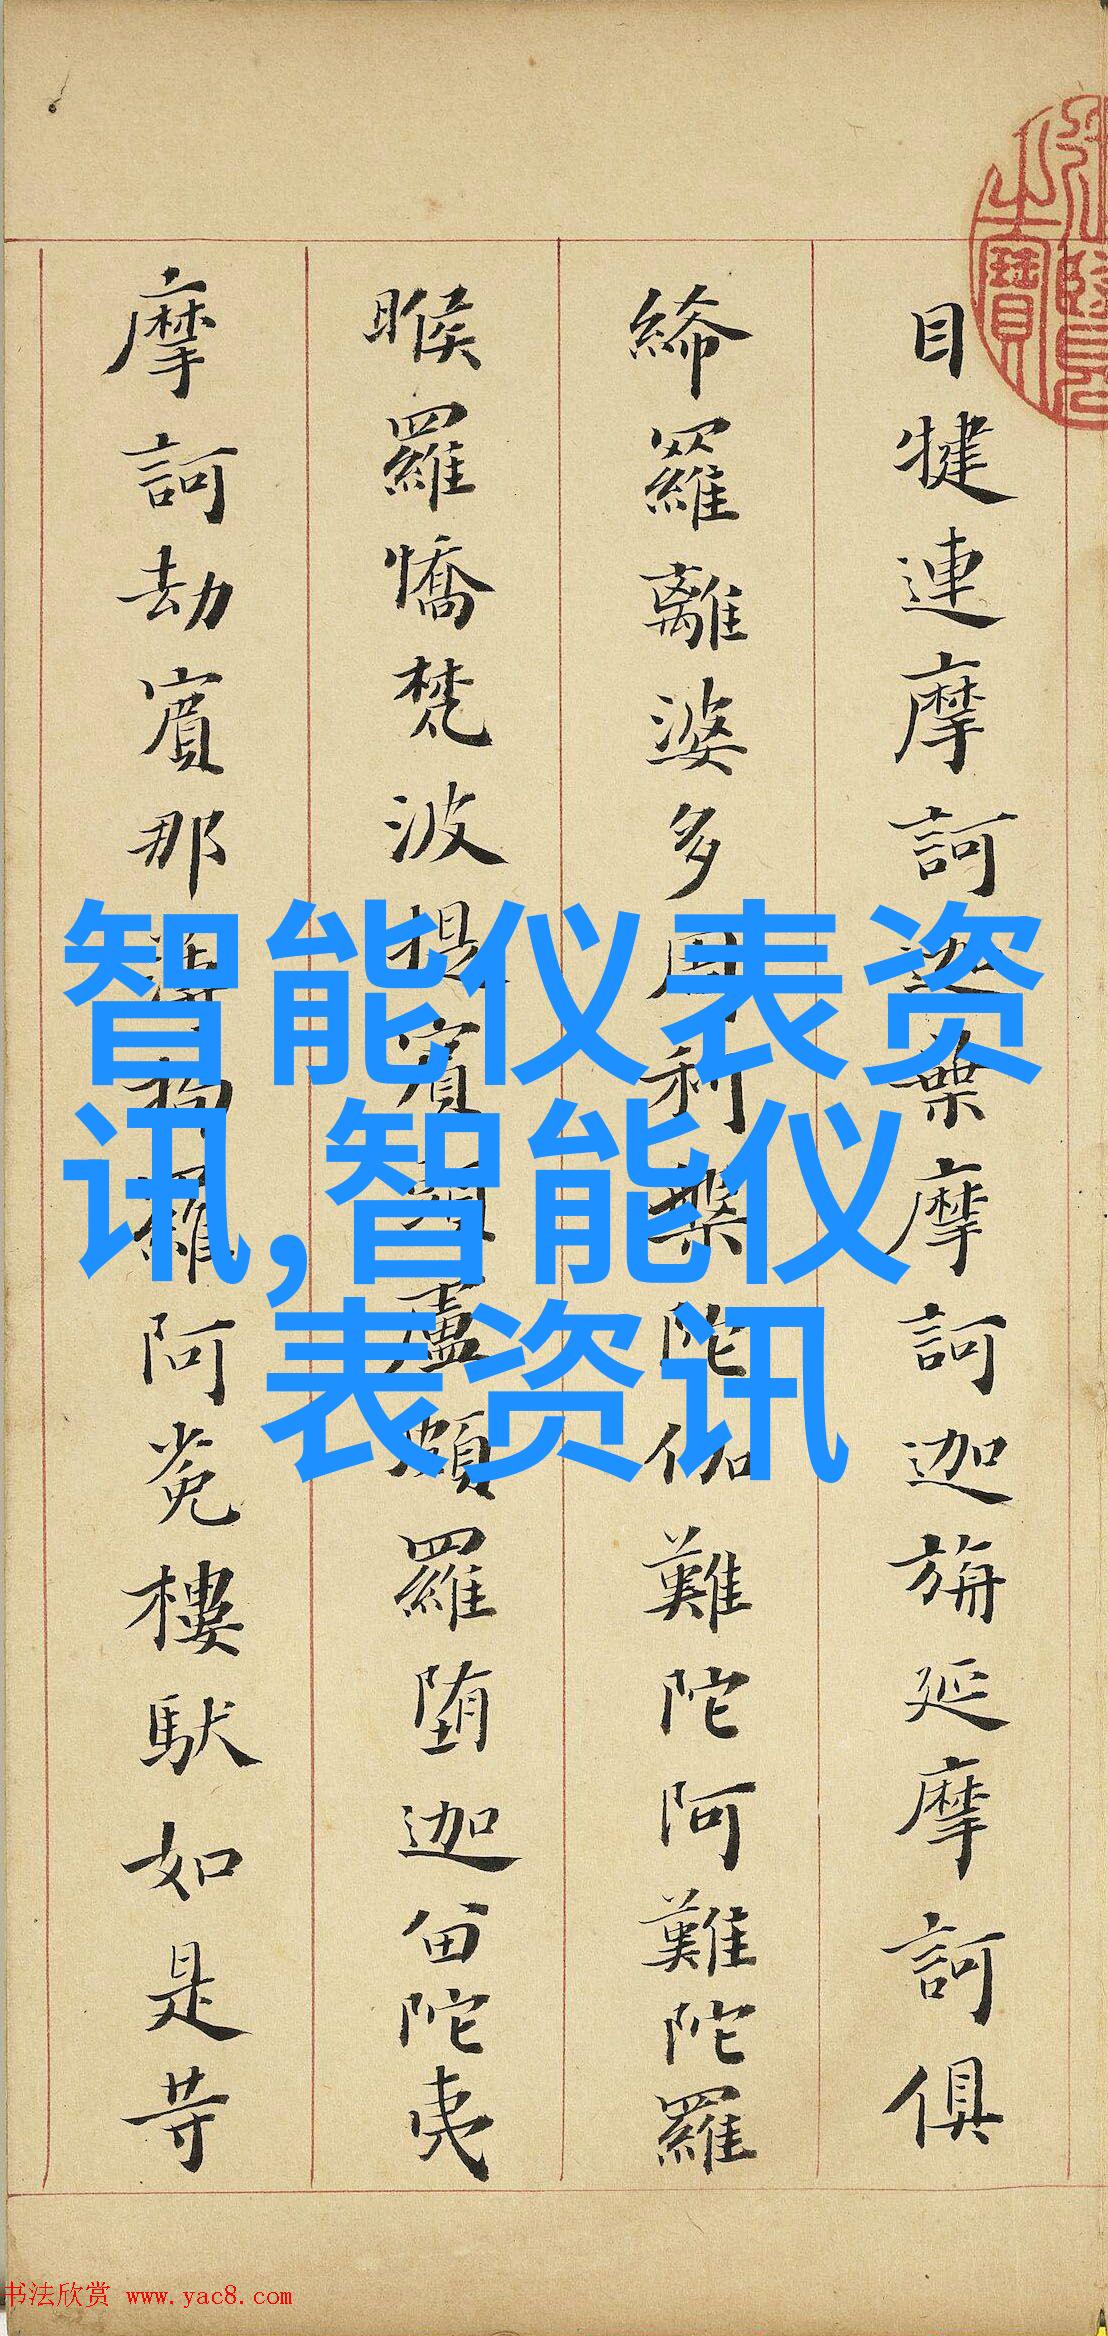 目犍連摩訶迦葉摩訶迦旃延摩訶俱
絺羅離婆多周利槃陀伽難陀阿難陀羅
睺羅憍梵波提賓頭盧頗羅堕迦留陀夷
摩訶劫賓那薄拘羅阿㝹樓馱如是等
智能仪表资
讯,智能仪
表资讯
书法欣赏 www.yac8.com